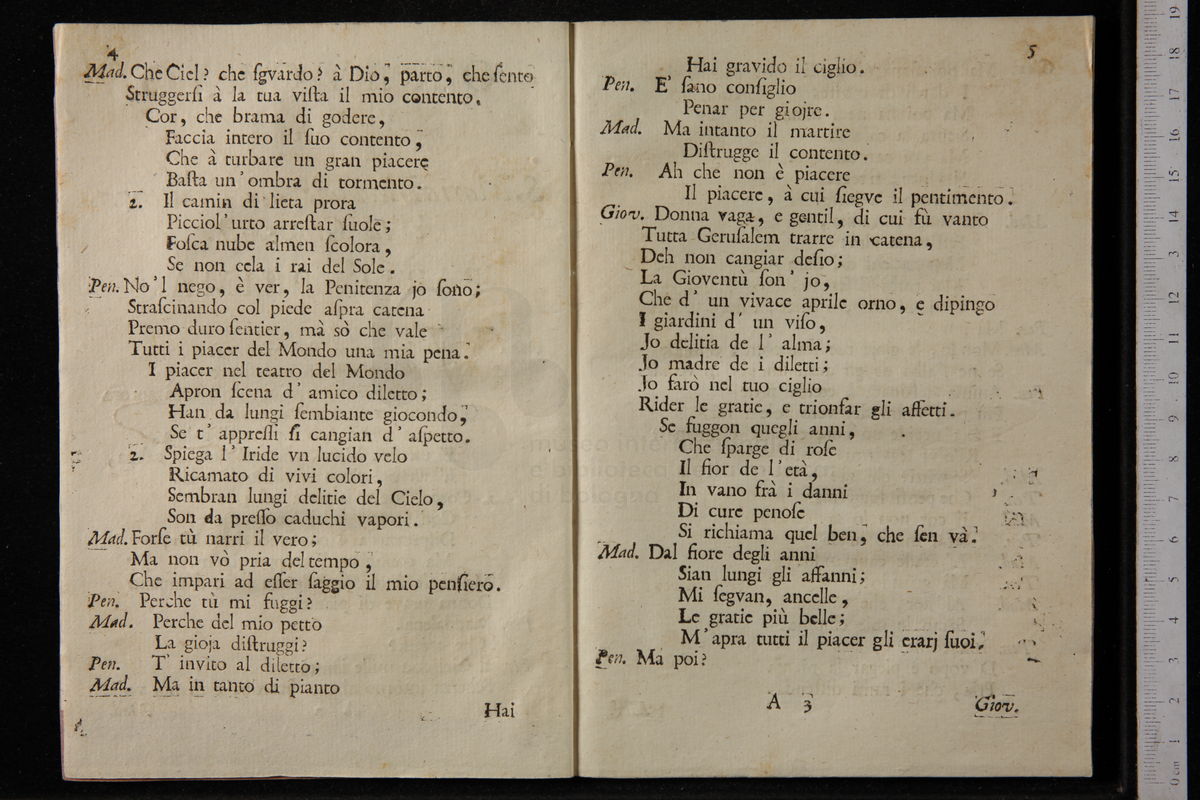 4
Mad. Che Ciel? che ſgvardo? à Dio, parto, che ſento
Struggerſi à la tua viſta il mio contento.
Cor, che brama di godere,
Faccia intero il ſuo contento,
Che à turbare un gran piacere
Baſta un' ombra di tormento.
2. Il camin di lieta prora
Picciol' urto arreſtar ſuole;
Foſca nube almen ſcolora,
Se non cela i rai del Sole.
Pen. No'l nego, è ver, la Penitenza jo ſono;
Straſcinando col piede aſpra catena
Premo duro ſentier, mà sò che vale
Tutti i piacer del Mondo una mia pena.
I piacer nel teatro del Mondo
Apron ſcena d' amico diletto;
Han da lungi ſembiante giocondo,
Se t' appreſſi ſi cangian d' aſpetto.
2. Spiega l' Iride vn lucido velo
Ricamato di vivi colori,
Sembran lungi delitie del Cielo,
Son da preſſo caduchi vapori.
Mad. Forſe tù narri il vero;
Ma non vò pria del tempo,
Che impari ad eſſer ſaggio il mio penſiero.
Pen. Perche tù mi fuggi?
Mad. Perche del mio petto
La gioja diſtruggi?
Pen. T' invito al diletto;
Mad. Ma in tanto di pianto
Hai
5
Hai gravido il ciglio.
Pen. E' ſano conſiglio
Penar per giojre.
Mad. Ma intanto il martire
Diſtrugge il contento.
Pen. Ah che non è piacere
Il piacere, à cui ſiegve il pentimento.
Giov. Donna vaga, e gentil, di cui fù vanto
Tutta Geruſalem trarre in catena,
Deh non cangiar deſio;
La Gioventù ſon' jo,
Che d' un vivace aprile orno, e dipingo
I giardini d' un viſo,
Jo delitia de l' alma;
Jo madre de i diletti;
Jo farò nel tuo ciglio
Rider le gratie, e trionfar gli affetti.
Se fuggon quegli anni,
Che ſparge di roſe
Il fior de l'età,
In vano frà i danni
Di cure penoſe
Si richiama quel ben, che ſen và.
Mad. Dal fiore degli anni
Sian lungi gli affanni;
Mi ſegvan, ancelle,
Le gratie più belle;
M'apra tutti il piacer gli erarj ſuoi.
Pen. Ma poi?
A 3
Giov.